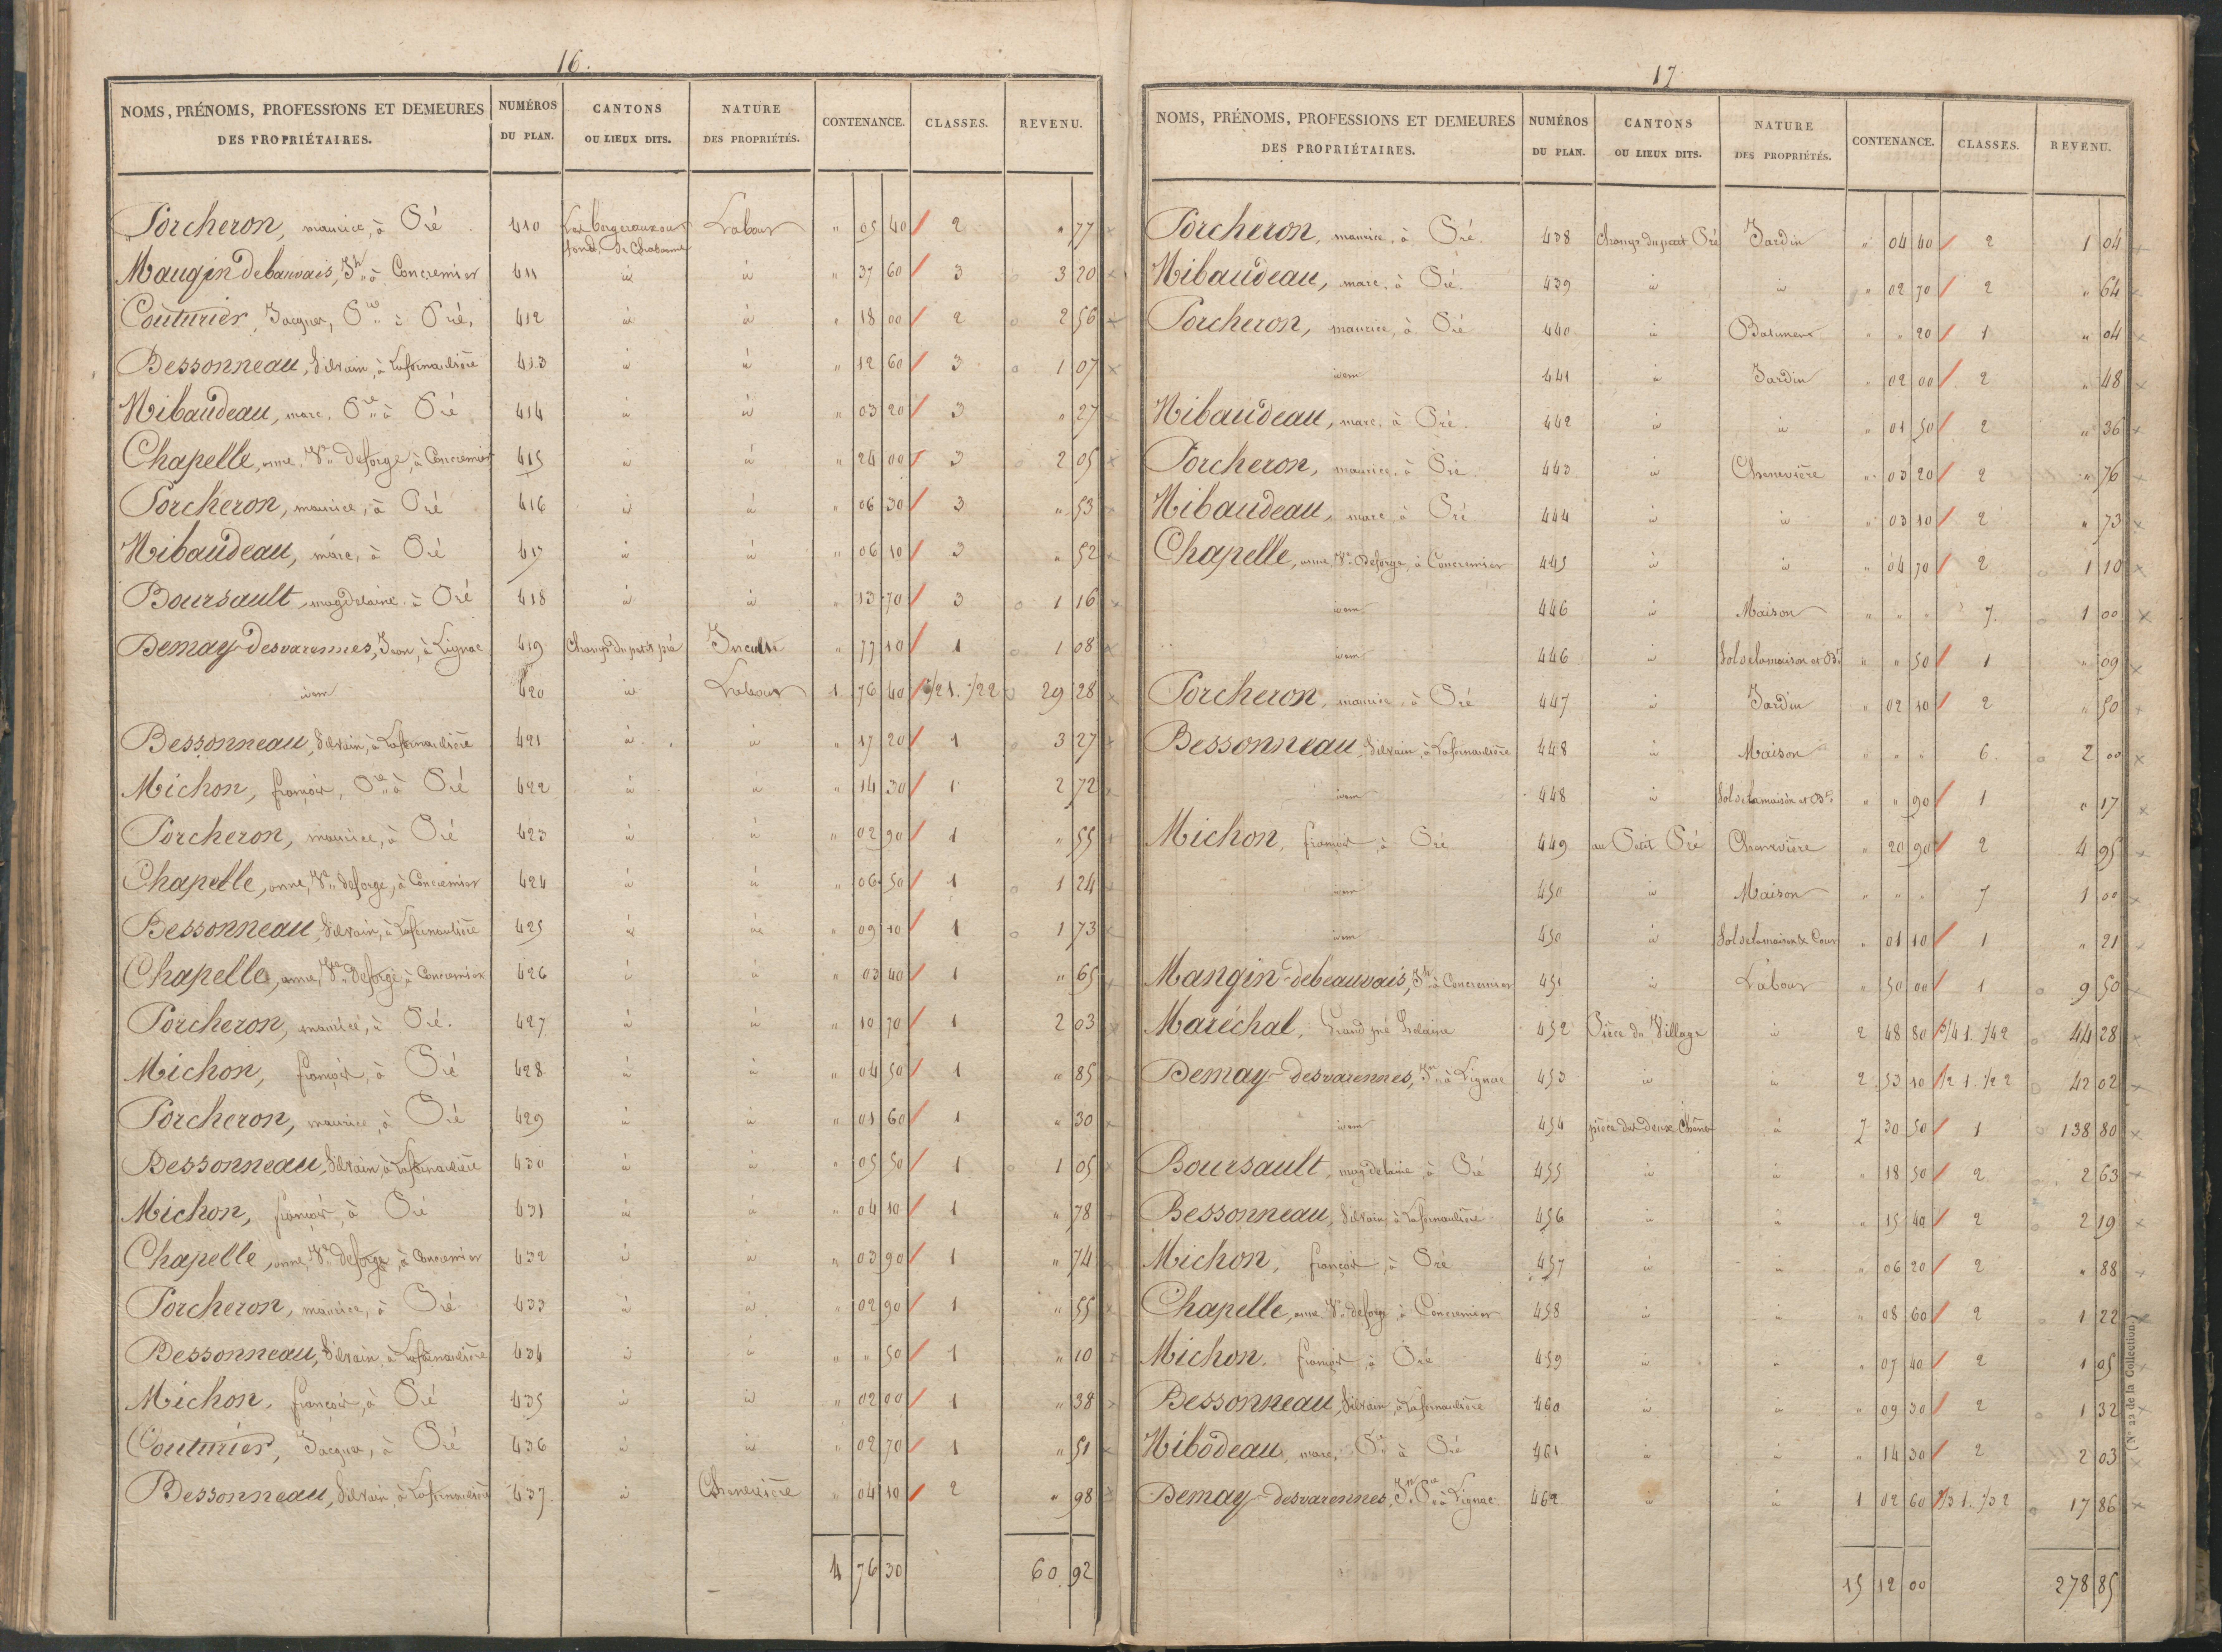 16.
NOMS, PRÉNOMS, PROFESSIONS ET DEMEURES DES PROPRIÉTAIRES. NUMÉROS DU PLAN. CANTONS OU LIEUX DITS. NATURE DES PROPRIÉTÉS. CONTENANCE. CLASSES. REVENU.
Porcheron, maurice, à Oré 410 Les bergeraux ou fond de Chabanne Labour " 05 40 2 " 77
Maugin debauvais, Jh à Concremier 411 id id " 37 60 3 3 20
Couturier, Jacques, Pre à Pré, 412 id id " 18 00 2 2 56
Bessonneau, Silvain, à Lafornauliere 413 id id " 12 60 3 1 07
Nibaudeau, marc, Pre à Pré 414 id id " 03 20 3 " 27
Chapelle, anne, Ve deforge, à Concremier 415 id id " 24 00 3 2 05
Porcheron, maurice, à Pré 416 id id " 06 30 3 " 53
Nibaudeau, marc, à Pré 417 id id " 06 10 3 " 52
Boursault, magdelaine à Pré 418 id id " 13 70 3 1 16
Demay-desvarennes, Jean, à Lignac 419 Champs du petit pré Inculte " 77 10 1 1 08
idem 420 id Labour 1 76 40 1/2 1. 1/2 2 29 28
Bessonneau, Silvain, à Lafornauliere 421 id id " 17 20 1 3 27
Michon, françois, Pre à Pré 422 id id " 14 30 1 2 72
Porcheron, maurice, à Pré 423 id id " 02 90 1 " 55
Chapelle, anne, Ve deforge, à Concremier 424 id id " 06 50 1 1 24
Bessonneau, Silvain, à Lafornauliere 425 id id " 09 10 1 1 73
Chapelle, anne, Ve deforge à Concremier 426 id id " 03 40 1 " 65
Porcheron, maurice, à Pré. 427 id id " 10 70 1 2 03
Michon, françois, à Pré 428 id id " 04 50 1 " 85
Porcheron, maurice, à Pré 429 id id " 01 60 1 " 30
Bessonneau, Silvain à Lafornauliere 430 id id " 05 50 1 1 05
Michon, françois, à Pré 431 id id " 04 10 1 " 78
Chapelle, anne, Ve deforge, à Concremier 432 id id " 03 90 1 " 74
Porcheron, maurice, à Pré 433 id id " 02 90 1 " 55
Bessonneau, Silvain, à Lafornauliere 434 id id " " 50 1 " 10
Michon, françois, à Pré 435 id id " 02 00 1 " 38
Couturier, Jacques, à Pré 436 id id " 02 70 1 " 51
Bessonneau, Silvain, à Lafornauliere 437 id Chenevière " 04 10 2 " 98
4 76 30 60 92
17
NOMS, PRÉNOMS, PROFESSIONS ET DEMEURES DES PROPRIÉTAIRES. NUMÉROS DU PLAN. CANTONS OU LIEUX DITS. NATURE DES PROPRIÉTÉS. CONTENANCE. CLASSES. REVENU.
Porcheron, maurice, à Pré 438 Champs du petit Pré Jardin " 04 40 2 1 04
Nibaudeau, marc, à Pré. 439 id id " 02 70 2 " 64
Porcheron, maurice, à Pré 440 id Batiment " " 20 1 " 04
idem 441 id Jardin " 02 00 2 " 48
Nibaudeau, marc, à Pré. 442 id id " 01 50 2 " 36
Porcheron, maurice, à Pré. 443 id Chenevière " 03 20 2 " 76
Nibaudeau, marc à Pré 444 id id " 03 10 2 " 73
Chapelle, anne, Ve Deforge, à Concremier 445 id id " 04 70 2 1 10
idem 446 id Maison " " " 7. 1 00
idem 446 id Sol de la maison et Bt. " " 50 1 " 09
Porcheron, maurice, à Pré 447 id Jardin " 02 10 2 " 50
Bessonneau, Silvain, à Lafornauliere 448 id Maison " " " 6 2 00
idem 448 id Sol de la maison et Bt. " " 90 1 " 17
Michon, françois, à Pré 449 au Petit Pré Chenevière " 20 90 2 4 95
idem 450 id Maison " " " 7 1 00
idem 450 id Sol de la maison & Cour " 01 10 1 " 21
Mangin-debeauvais, Jh à Concremier 451 id Labour " 50 00 1 9 50
Maréchal, Grand pré 452 Pièce du Village id 2 48 80 3/4 1. 1/4 2 44 28
Demay-desvarennes, Jn à Lignac 453 id id 2 53 10 1/2 1. 1/2 2 42 02
idem 454 pièce des deux Chênes id 7 30 50 1 138 80
Boursault, magdelaine, à Pré 455 id id " 18 50 2 2 63
Bessonneau, Silvain à Lafornauliere 456 id id " 15 40 2 2 19
Michon, françois, à Pré 457 id id " 06 20 2 " 88
Chapelle, anne, Ve deforge à Concremier 458 id id " 08 60 2 1 22
Michon, françois, à Pré 459 id id " 07 40 2 1 05
Bessonneau, Silvain, à Lafornauliere 460 id id " 09 30 2 1 32
Nibodeau, marc, Pre à Pré 461 id id " 14 30 2 2 03
Demay-desvarennes, Jn Pre à Lignac. 462 id id 1 02 60 2/3 1. 1/3 2 17 86
15 12 00 278 85
(N° 22 de la Collection.)